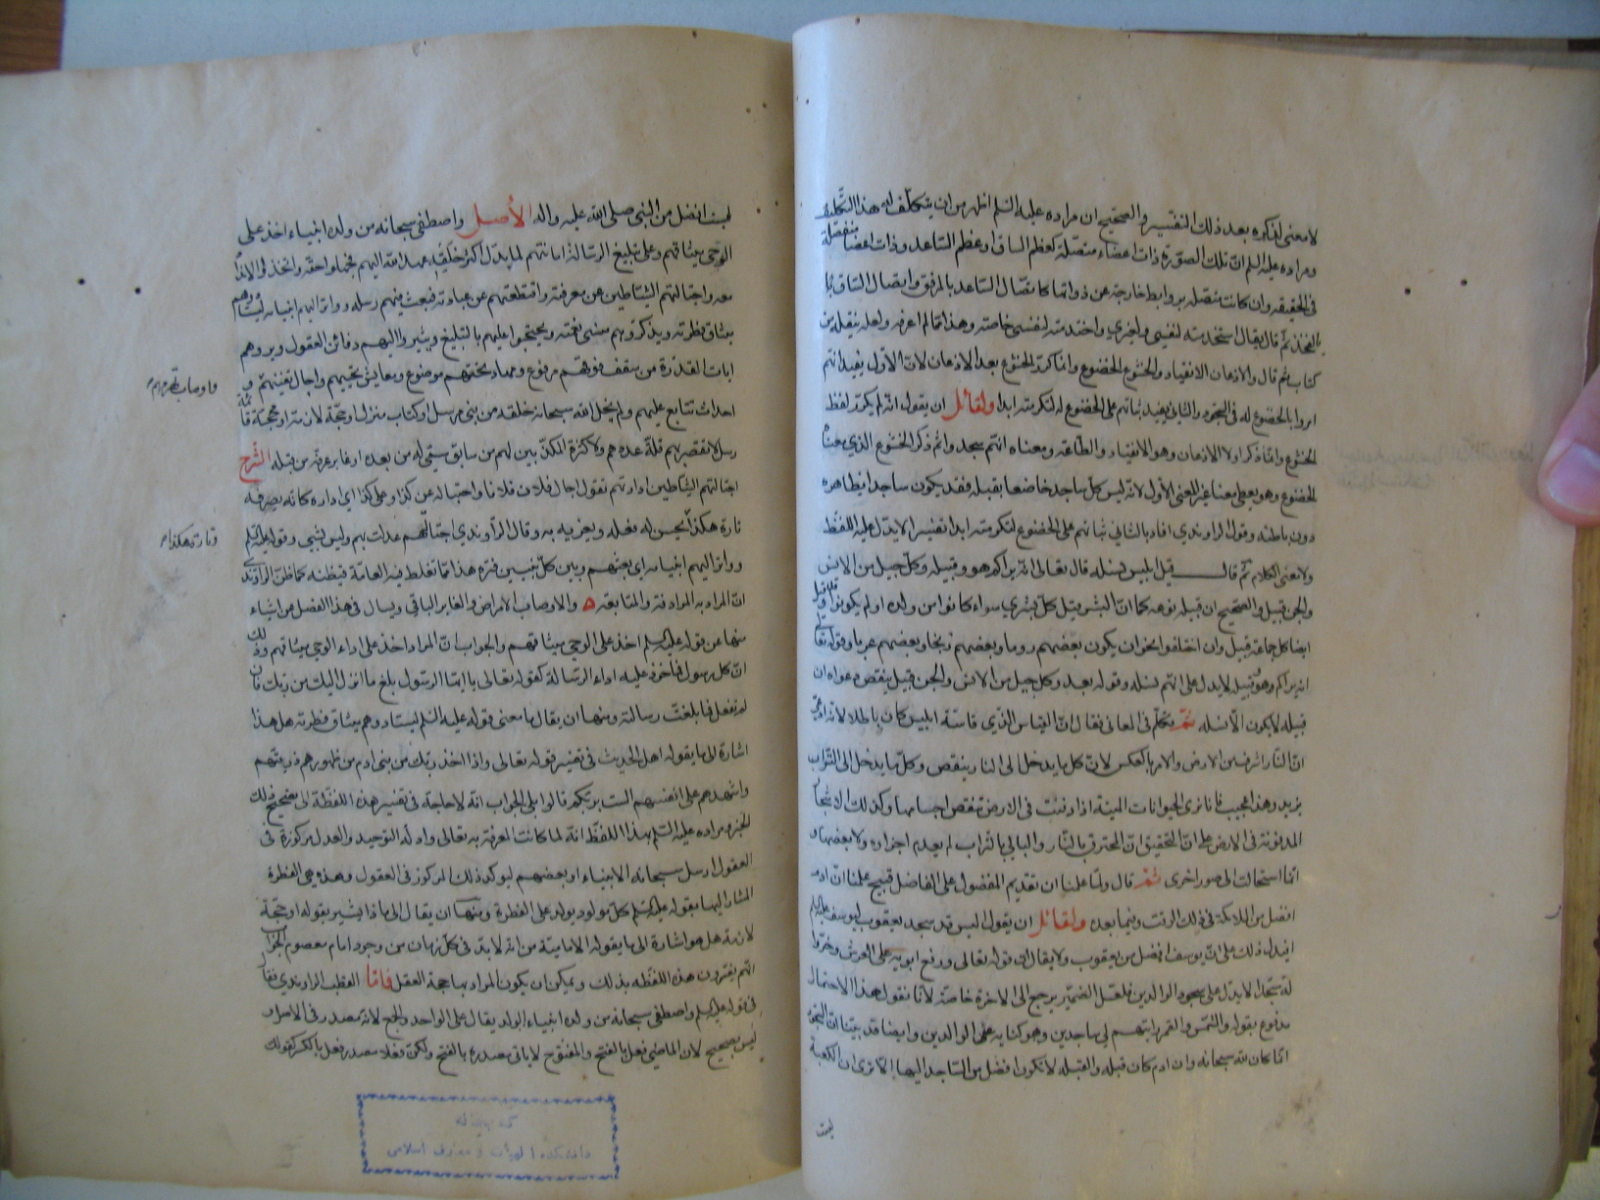 لا معنى لذكره بعد ذلك التفسير والصحيح ان مراده عليه السلم اظهر من ان يتكلف له هذا التكلف
ومراده عليه السلم ان تلك الصورة ذات اعضاء متصلة كعظم الساق او عظم الساعد وذات اعضا منفصلة
في الحقيقة وان كانت متصلة بروابط خارجة عن ذواتها كاتصال الساعد بالمرفق واتصال الساق با
لفخذ ثم قال يقال استخدمته لنفسي ولغيري واختدمته لنفسي خاصة وهذا مما لم اعرفه ولعله نقله من
كتاب ثم قال والاذعان الانقياد والخنوع الخضوع وانما كرر الخنوع بعد الاذعان لان الاول يفيد انهم
امروا بالخضوع له في السجود والثاني يفيد ثباتهم على الخضوع له لتكرمته ابدا ولقائل ان يقول انه لم يكرر لفظ
الخنوع وانما ذكر اولا الاذعان وهو الانقياد والطاعة ومعناه انهم سجدوا ثم ذكر الخنوع الذي معناه
الخضوع وهو يعطي معنا غير المعنى الاول لانه ليس كل ساجد خاضعا بقلبه فقد يكون ساجدا بظاهره
دون باطنه وقول الراوندي افاد بالثاني ثباتهم على الخضوع لتكرمته ابدا تفسير لا يدل عليه اللفظ
ولا معنى الكلام ثم قال قبيل ابليس نسله قال تعالى انه يراكم هو وقبيله وكل جيل من الانس
والجن قبيل والصحيح ان قبيله نوعه كما ان البشر قبيل كل بشري سواء كانوا من ولده او لم يكونوا وقد قيل
ايضا كل جماعة قبيل وان اختلفوا نحو ان يكون بعضهم روما وبعضهم زنجا وبعضهم عربا وقوله تعالى
انه يراكم هو وقبيله لا يدل على انهم نسله وقوله بعد وكل جيل من الانس والجن قبيل ينقض دعواه ان
قبيله لا يكون الا نسله ثم تكلم في المعاني فقال ان القياس الذي قاسه ابليس كان باطلا لانه ادعى
ان النار اشرف من الارض والامر بالعكس لان كل ما يدخل الى النار ينقص وكل ما يدخل الى التراب
يزيد وهذا عجيب فانا نرى الحيوانات الميتة اذا دفنت في الارض تنقص اجسامها وكذلك الاشجار
المدفونة في الارض على ان التحقيق ان المحترق بالنار والبالي بالتراب لم يعدم اجزاوه ولا بعضها و
انما استحالت الى صور اخرى ثم قال ولما علمنا ان تقديم المفضول على الفاضل قبيح علمنا ان ادم
افضل من الملائكة في ذلك الوقت وفيما بعده ولقائل ان يقول اليس قد سجد يعقوب ليوسف عليه السلم
افيدل ذلك على ان يوسف افضل من يعقوب ولا يقال ان قوله تعالى ورفع ابويه على العرش وخروا
له سجدا لا يدل على سجود الوالدين فلعل الضمير يرجع الى الاخوة خاصة لانا نقول هذا الاحتمال
مدفوع بقوله والشمس والقمر رايتهم لي ساجدين وهو كناية على الوالدين وايضا قد بينا ان السجود
انما كان لله سبحانه وان ادم كان قبله والقبله لا تكون افضل من الساجد اليها الا ترى ان الكعبة
ليست
ليست افضل من النبي صلى الله عليه واله الأصل واصطفى سبحانه من ولده انبياء اخذ على
الوحي ميثاقهم وعلى تبليغ الرسالة امانتهم لما بدل اكثر خلقه عهد الله اليهم فجهلوا حقه واتخذوا الانداد
معه واجتالتهم الشياطين عن معرفته واقتطعتهم عن عبادته فبعث فيهم رسله وواتر اليهم انبياءه ليستادوهم
ميثاق فطرته ويذكروهم منسي نعمته ويحتجوا عليهم بالتبليغ ويثيروا اليهم دفائن العقول ويروهم
ايات القدرة من سقف فوقهم مرفوع ومهاد تحتهم موضوع ومعايش تحييهم واجال تفنيهم و
واوصاب تهرمهم
احداث تتابع عليهم ولم يخل الله سبحانه خلقه من نبي مرسل او كتاب منزل او حجة لازمة او محجة قائمة
رسل لا تقصر بهم قلة عددهم ولا كثرة المكذبين لهم من سابق سمي له من بعده او غابر عرفه من قبله الشرح
اجتالتهم الشياطين ادارتهم تقول اجال فلان فلانا واجتاله عن كذا وعلى كذا اي اداره كانه يصرفه
تارة هكذا يحسن له فعله ويغريه به وقال الراوندي اجتالتهم عدلت بهم وليس بشيء وقوله عليه السلم
وتارة هكذا
وواتر اليهم انبياءه اي بعثهم وبين كل نبيين فترة هذا مما تغلط فيه العامة فتظنه كما ظن الراوندي
ان المراد به المرادفة والمتابعة ه والاوصاب الامراض والغابر الباقي ويسال في هذا الفصل عن اشياء
منها عن قوله عليه السلم اخذ على الوحي ميثاقهم والجواب ان المراد اخذ على اداء الوحي ميثاقهم وذلك
ان كل رسول فماخوذ عليه اداء الرسالة كقوله تعالى يا ايها الرسول بلغ ما انزل اليك من ربك فان
لم تفعل فما بلغت رسالته ومنها ان يقال ما معنى قوله عليه السلم ليستادوهم ميثاق فطرته هل هذا
اشارة الى ما يقوله اهل الحديث في تفسير قوله تعالى واذ اخذ ربك من بني ادم من ظهورهم ذريتهم
واشهدهم على انفسهم الست بربكم قالوا بلى الجواب انه لا حاجة في تفسير هذه اللفظة الى تصحيح ذلك
الخبر ومراده عليه السلم بهذا اللفظ انه لما كانت المعرفة به تعالى وادلة التوحيد والعدل مركوزة في
العقول ارسل سبحانه الانبياء او بعضهم ليوكد ذلك المركوز في العقول وهذه هي الفطرة
المشار اليها بقوله عليه السلم كل مولود يولد على الفطرة ومنها ان يقال الى ماذا يشير بقوله او حجة
لازمة هل هو اشارة الى ما يقوله الامامية من انه لا بد في كل زمان من وجود امام معصوم الجواب
انهم يفسرون هذه اللفظه بذلك ويمكن ان يكون المراد بها حجة العقل فاما القطب الراوندي فقال
في قوله عليه السلم واصطفى سبحانه من ولده انبياء الولد يقال على الواحد والجمع لانه مصدر في الاصل و
ليس بصحيح لان الماضي فعل بالفتح والمفتوح لا ياتي مصدره بالفتح ولكن فعلا مصدر فعل بالكسر كقولك
كتابخانه
دانشكده الهيات و معارف اسلامى